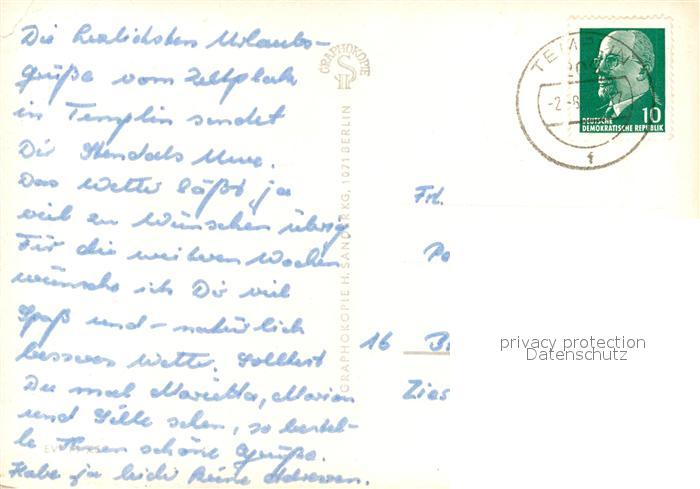 Die herzlichsten Urlaubs-
grüße vom Zeltplatz
in Templin sendet
Dir Stendals Uwe.
Das Wetter läßt ja
viel zu wünschen übrig
Für die weiteren Wochen
wünsche ich Dir viel
Spaß und - natürlich
besseres Wetter. Solltest
Du mal Marietta, Marion
und Sille sehen, so bestel-
le Ihnen schöne Grüße.
Habe ja leider keine Adressen.
GRAPHOKOPIE
GRAPHOKOPIE H. SANDER KG, 1071 BERLIN
TEMP
-2.-6
f
10
DEUTSCHE
DEMOKRATISCHE REPUBLIK
Frl.
16
Zies
privacy protection
Datenschutz